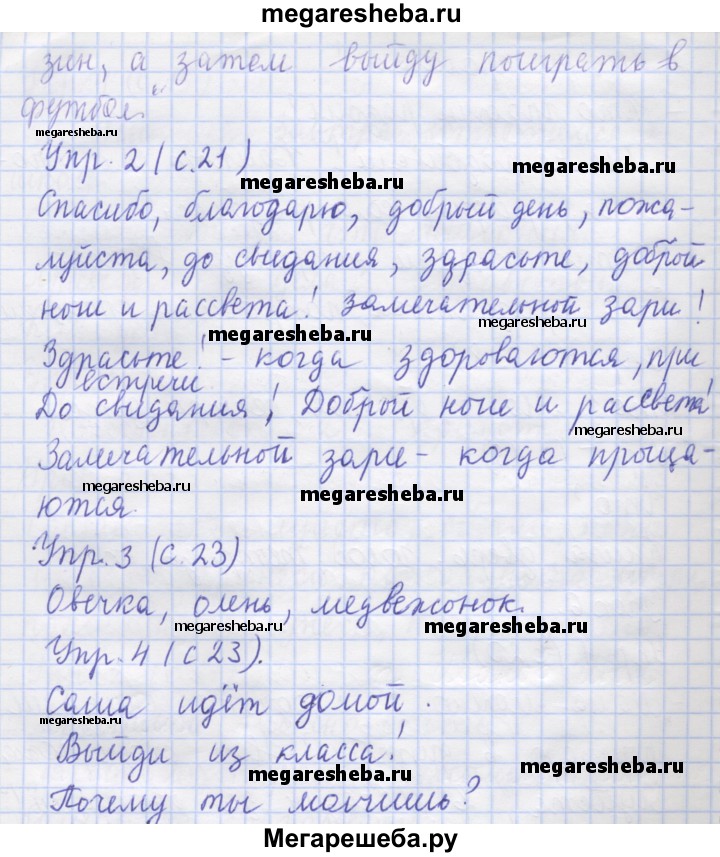 megaresheba.ru
зин, а затем выйду поиграть в
футбол."
megaresheba.ru
Упр. 2 (с.21)
megaresheba.ru
megaresheba.ru
Спасибо, благодарю, добрый день, пожа-
луйста, до свидания, здрасьте, доброй
ноше и рассвета! Замечательной зари!
megaresheba.ru
megaresheba.ru
Здрасьте! - когда здороваются, при
встречи
До свидания! Доброй ноше и рассвета!
megaresheba.ru
Замечательной зари - когда проща-
megaresheba.ru
megaresheba.ru
ются.
Упр. 3 (с. 23)
Овечка, олень, медвежонок.
megaresheba.ru
megaresheba.ru
Упр. 4 (с 23).
Саша идёт домой.
megaresheba.ru
Выйди из класса!
megaresheba.ru
megaresheba.ru
Почему ты молчишь?
Мегарешеба.ру